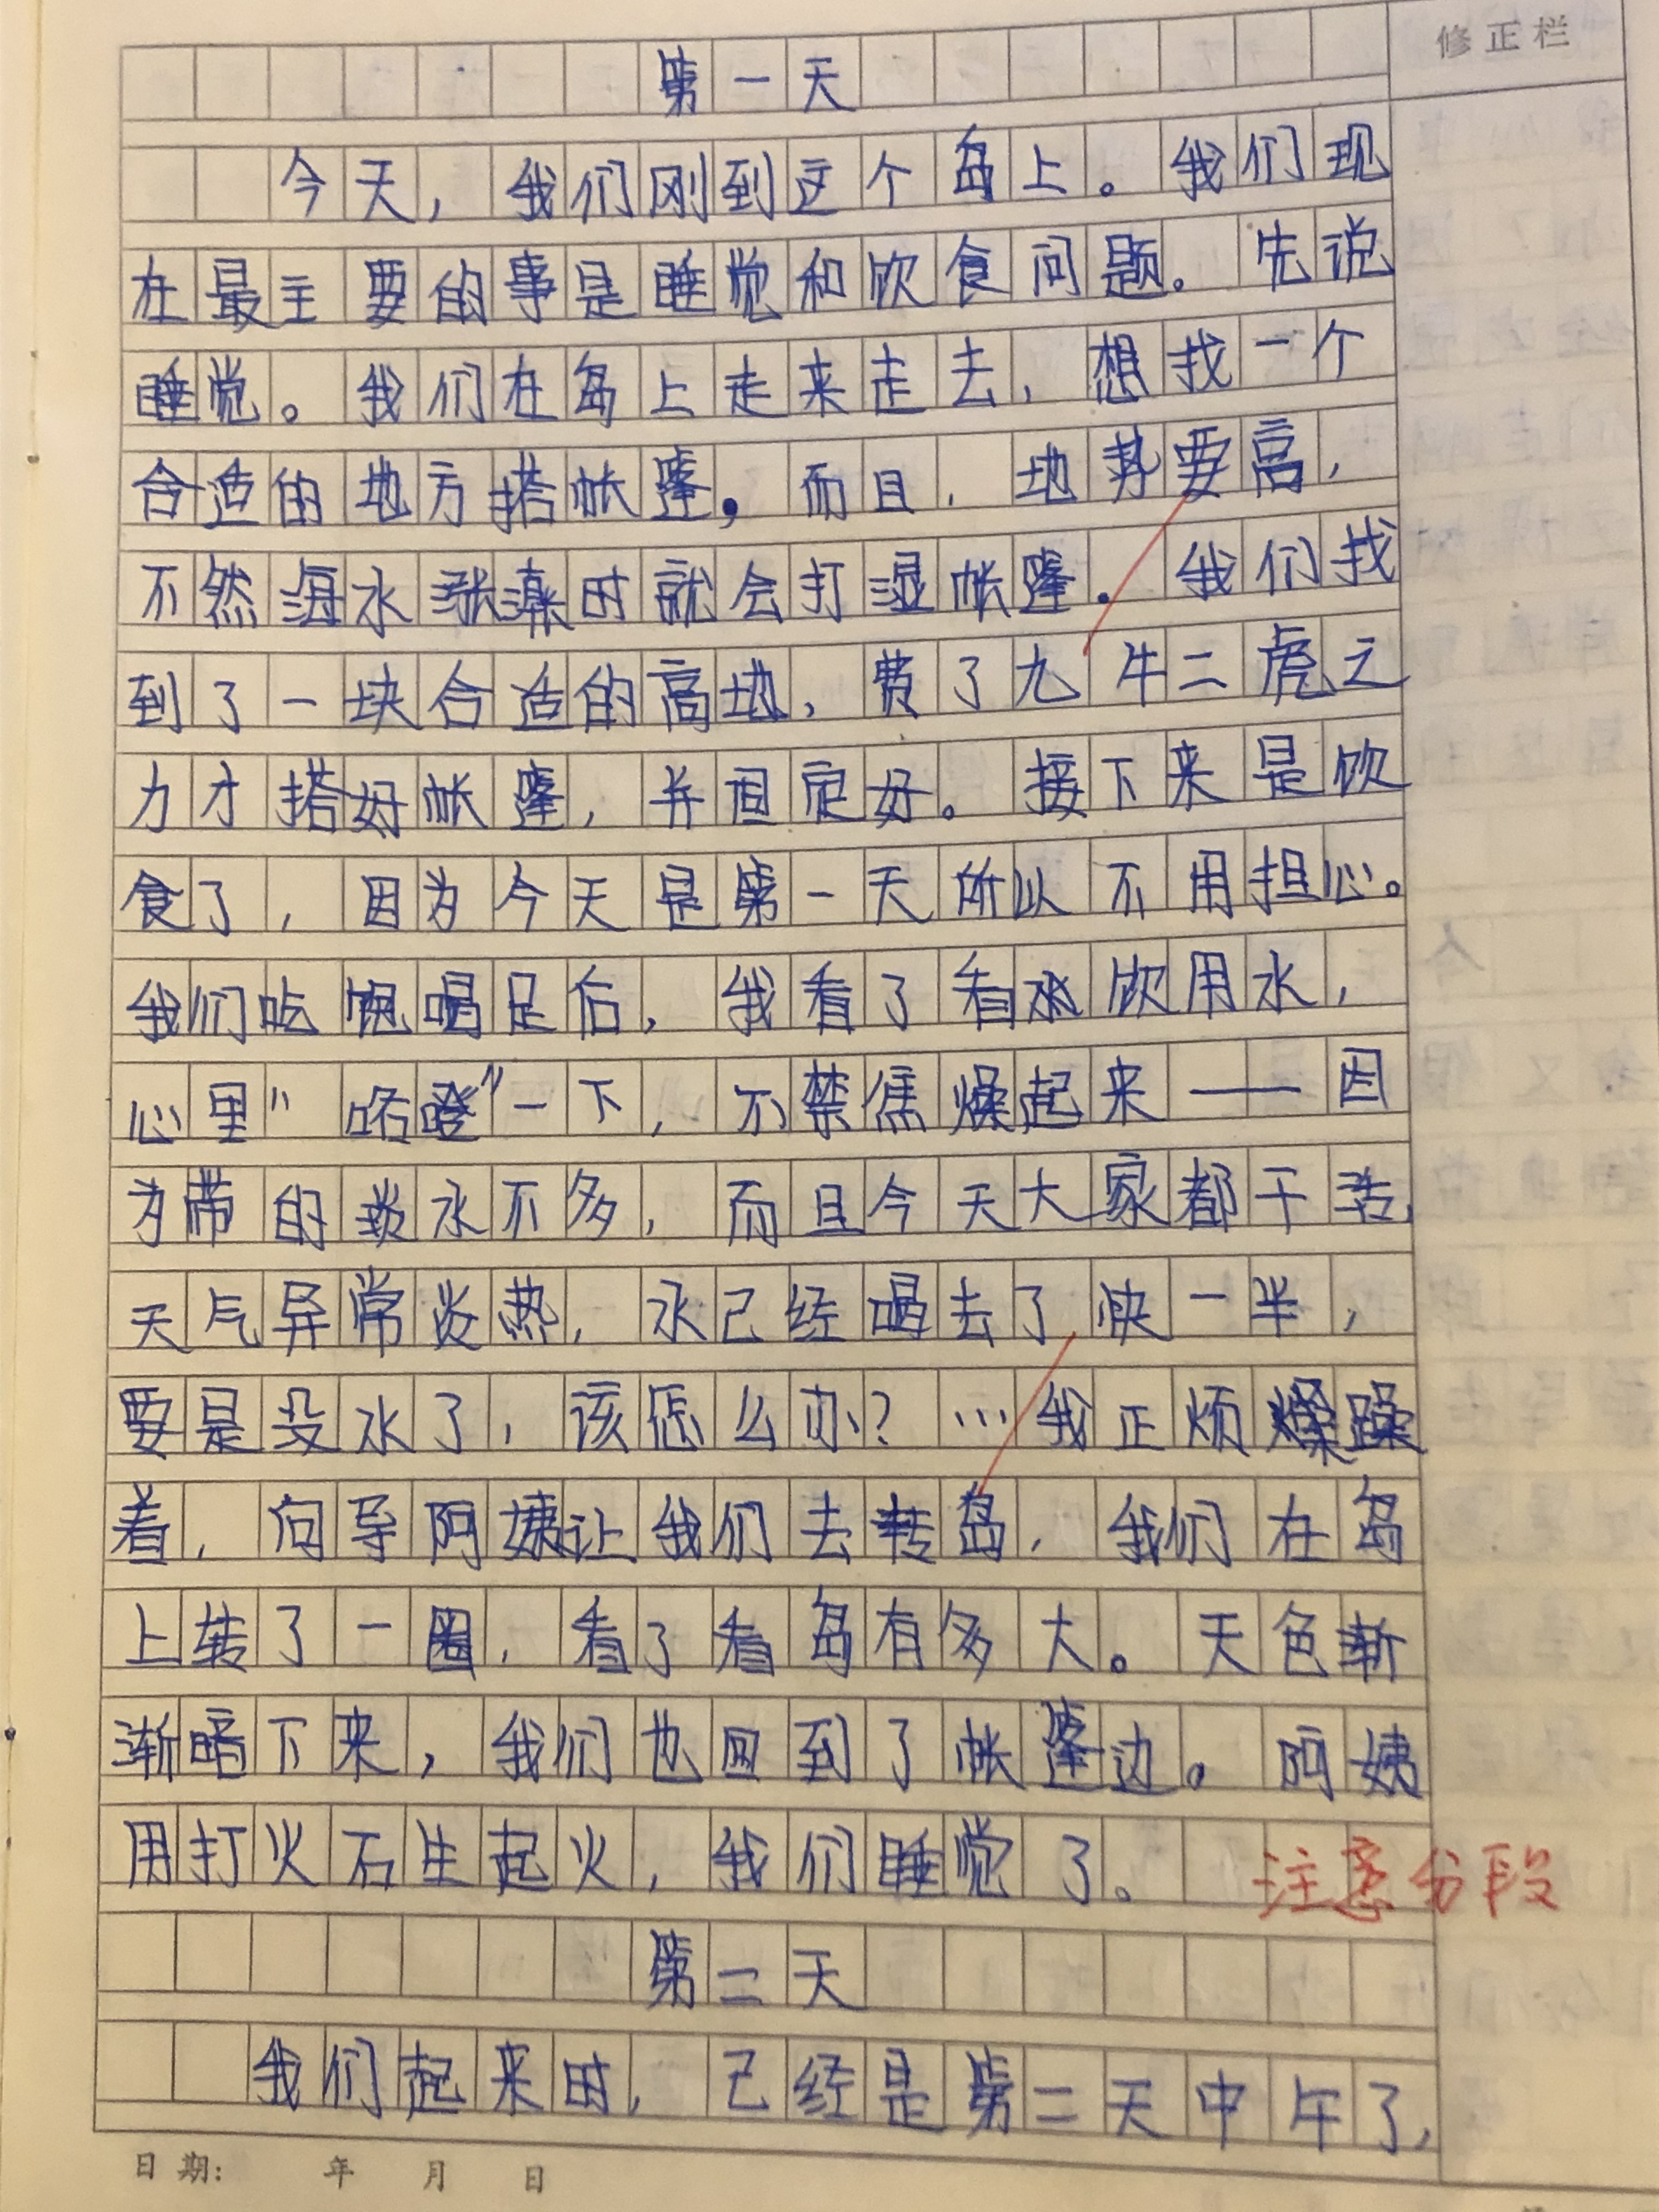 修正栏
第一天
今天，我们刚到这个岛上。我们现
在最主要的事是睡觉和饮食问题。先说
睡觉。我们在岛上走来走去，想找一个
合适的地方搭帐篷。而且，地势要高，
不然海水涨潮时就会打湿帐篷。我们找
到了一块合适的高地，费了九牛二虎之
力才搭好帐篷，并固定好。接下来是饮
食了，因为今天是第一天所以不用担心。
我们吃饱喝足后，我看了看饮用水，
心里"咯噔"一下，不禁焦燥起来——因
为带的淡水不多，而且今天大家都干活，
天气异常炎热，水已经喝去了快一半，
要是没水了，该怎么办？…我正烦躁
着，向导阿姨让我们去转岛，我们在岛
上转了一圈，看了看岛有多大。天色渐
渐暗下来，我们也回到了帐篷边。阿姨
用打火石生起火，我们睡觉了。
注意分段
第二天
我们起来时，已经是第二天中午了，
日期： 年 月 日